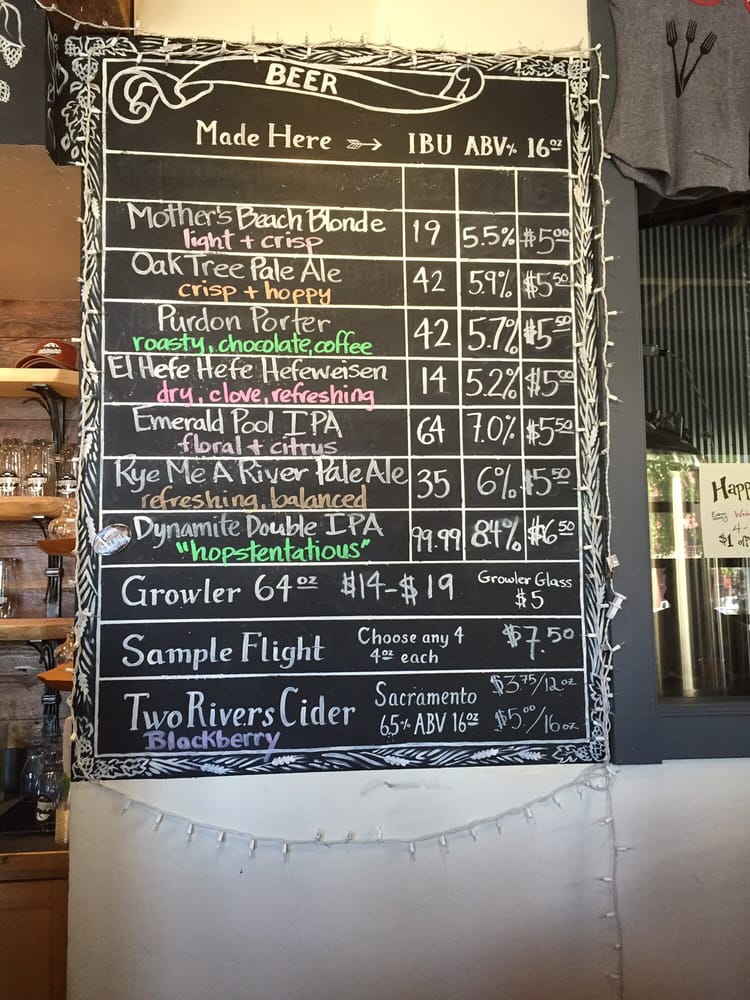 BEER
Made Here IBU ABV% 16oz
Mother's Beach Blonde 19 5.5% $5.00
light + crisp
Oak Tree Pale Ale 42 59% $5.50
crisp + hoppy
Purdon Porter 42 5.7% $5.50
roasty, chocolate, coffee
El Hefe Hefe Hefeweisen 14 5.2% $5.00
dry, clove, refreshing
Emerald Pool IPA 64 7.0% $5.50
floral + citrus
Rye Me A River Pale Ale 35 6% $5.50
refreshing, balanced
Dynamite Double IPA 99.99 8.4% $6.50
"hopstentatious"
Growler 64oz $14-$19 Growler Glass
$5
Sample Flight Choose any 4 $7.50
4oz each
Two Rivers Cider Sacramento $3.75/12oz
6.5% ABV 16oz $5.00/16oz
Blackberry
Happ
Every Wedn
$1 off